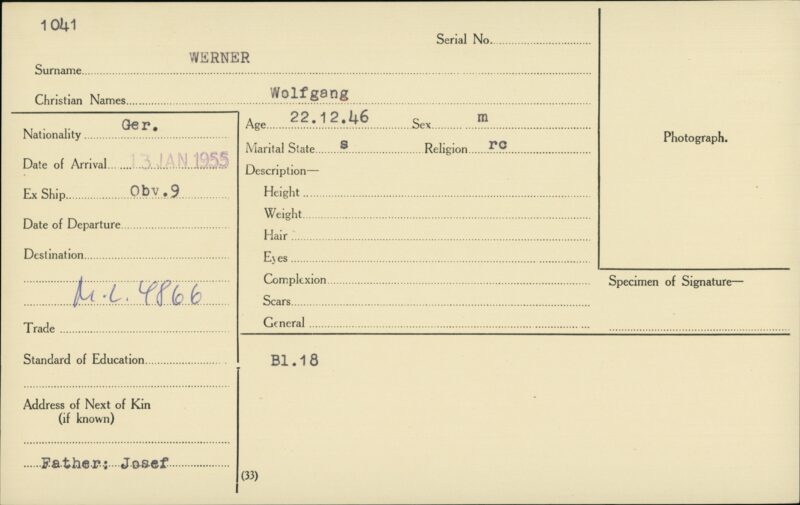 1041
Serial No.
Surname WERNER
Christian Names Wolfgang
Nationality Ger.
Date of Arrival 13 JAN 1955
Ex Ship Obv.9
Date of Departure
Destination
M.L. 4866
Trade
Standard of Education
Address of Next of Kin
(if known)
Father: Josef
Age 22.12.46 Sex m
Marital State s Religion rc
Description—
Height
Weight
Hair
Eyes
Complexion
Scars
General
Bl.18
(33)
Photograph.
Specimen of Signature—